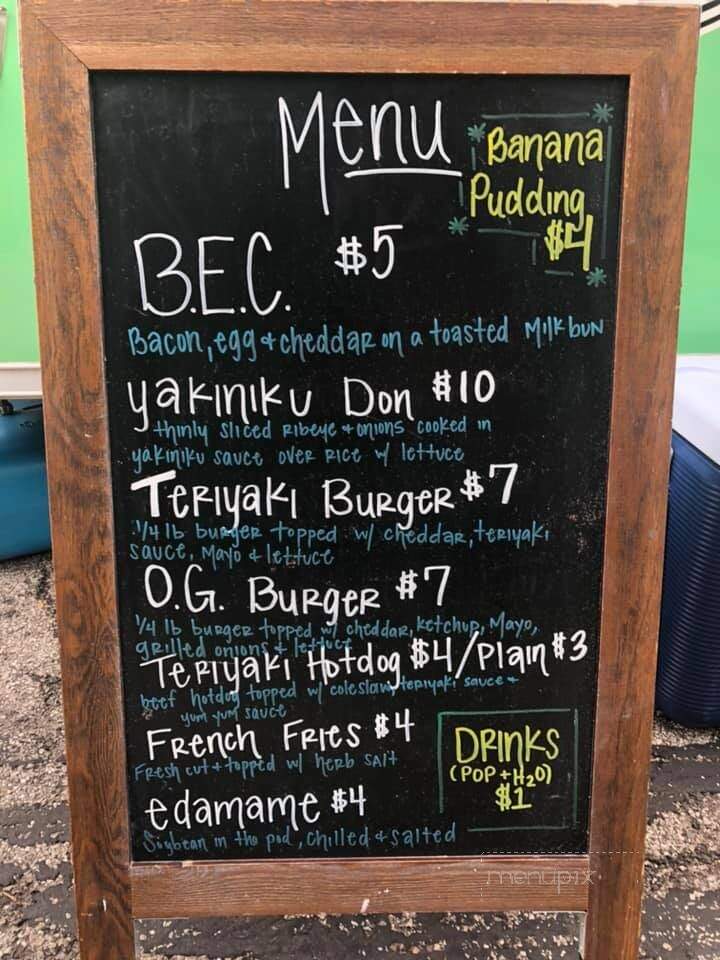 Menu
Banana
Pudding
$4
B.E.C. $5
Bacon, egg + cheddar on a toasted Milk bun
Yakiniku Don $10
thinly sliced Ribeye + onions cooked in
yakiniku sauce over Rice w/ lettuce
Teriyaki Burger $7
1/4 lb burger topped w/ cheddar, teriyaki
sauce, Mayo & lettuce
O.G. Burger $7
1/4 lb burger topped w/ cheddar, ketchup, Mayo,
grilled onions & lettuce
Teriyaki Hotdog $4/Plain $3
beef hotdog topped w/ coleslaw, teriyaki sauce +
yum yum sauce
French Fries $4
Fresh cut + topped w/ herb salt
edamame $4
Soybean in the pod, chilled & salted
DRINKS
(POP + H2O)
$1
menupix